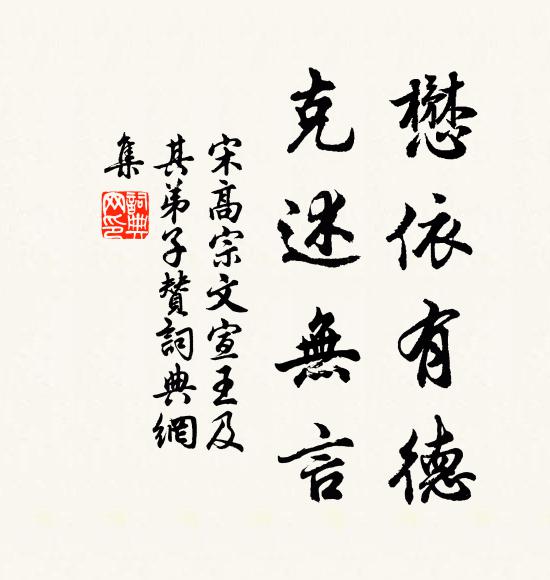 懋依有德
克述無言
宋高宗文宣王及
其弟子贊詞典網
集
詞典
網印